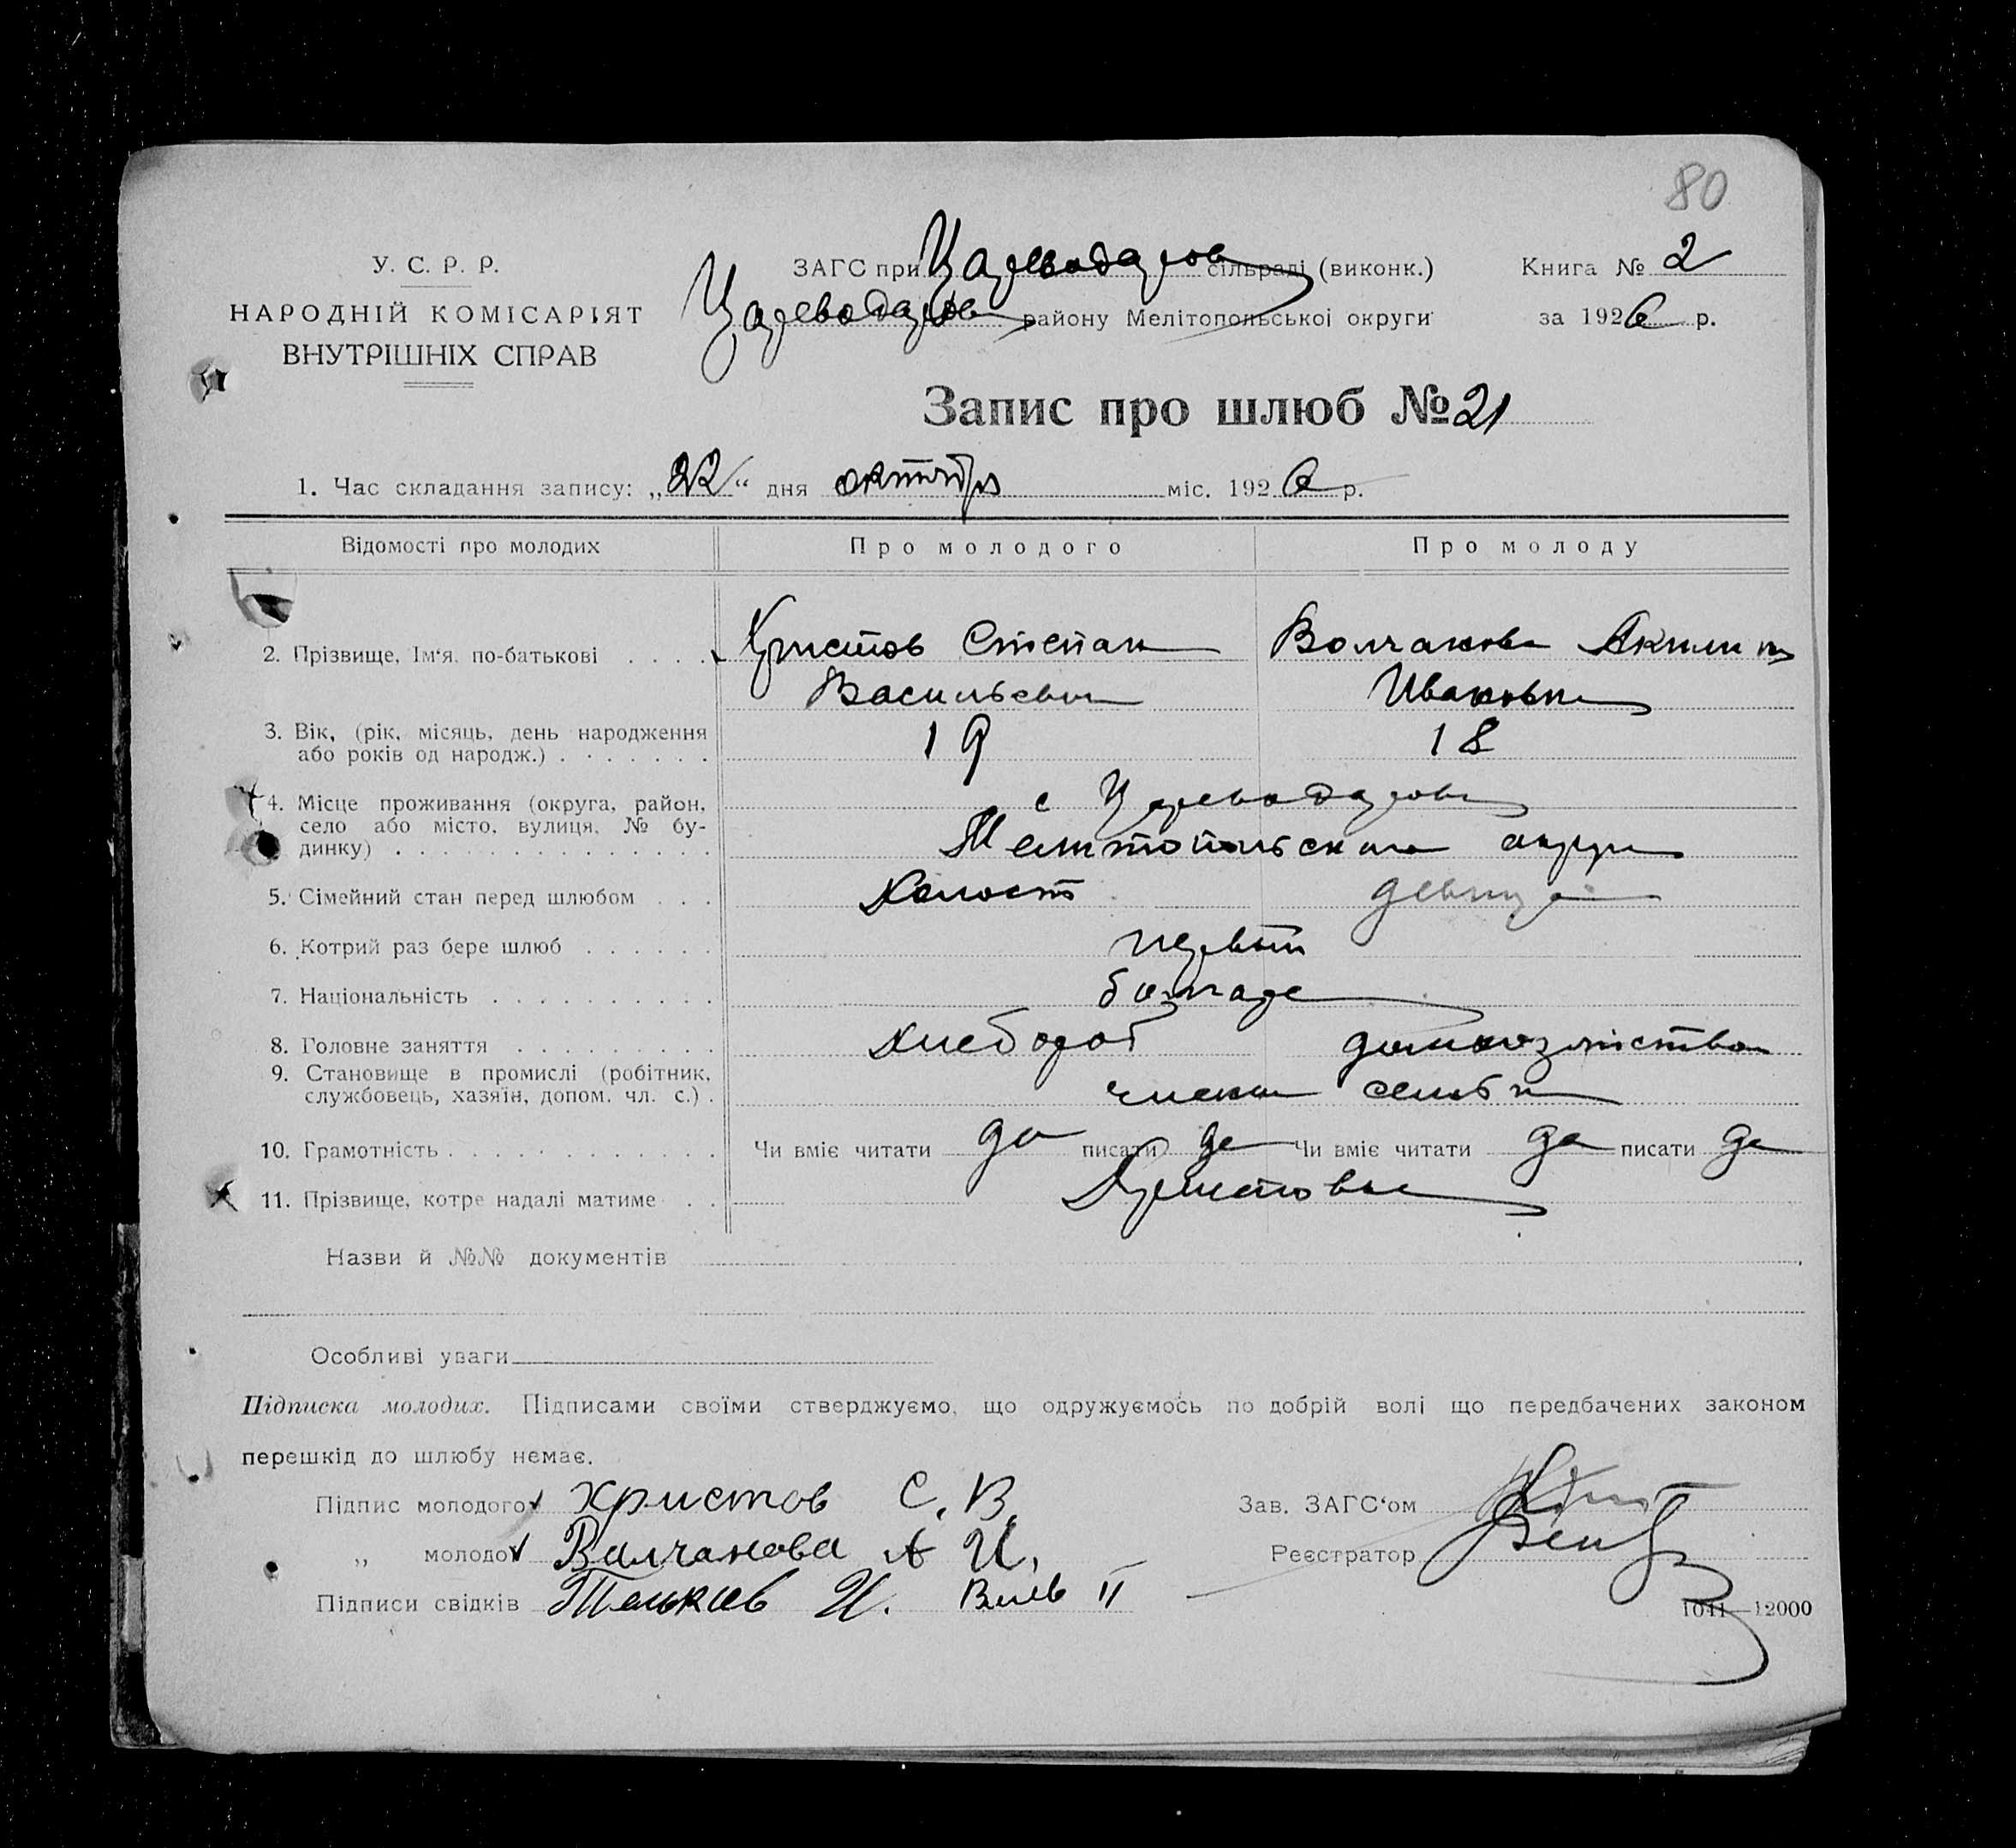 80
У. С. Р. Р.
НАРОДНІЙ КОМІСАРІЯТ
ВНУТРІШНІХ СПРАВ
ЗАГС при Цареводаров сільраді (виконк.)
Книга № 2
Цареводаров району Мелітопольської округи
за 1926 р.
Запис про шлюб № 21
1. Час складання запису: „22“ дня октября міс. 1926 р.
Відомості про молодих
Про молодого
Про молоду
2. Прізвище, Ім'я, по-батькові . . . .
Христов Степан
Васильевич
Волчанова Акилина
Ивановна
3. Вік, (рік, місяць, день народження
або років од народж.) . . . . . . .
19
18
4. Місце проживання (округа, район,
село або місто, вулиця, № бу-
динку) . . . . . . . . . . . . . .
с Цареводаровка
Мелитопольского округа
5. Сімейний стан перед шлюбом . . .
Холост
девица
6. Котрий раз бере шлюб . . . . . .
первый
7. Національність . . . . . . . . . .
болгаре
8. Головне заняття . . . . . . . . .
хлебороб
домохозяйство
9. Становище в промислі (робітник,
службовець, хазяїн, допом. чл. с.) .
члены семьи
10. Грамотність . . . . . . . . . . . .
Чи вміє читати да писати да
Чи вміє читати да писати да
11. Прізвище, котре надалі матиме . .
Христовы
Назви й №№ документів
Особливі уваги
Підписка молодих. Підписами своїми стверджуємо, що одружуємось по добрій волі що передбачених законом
перешкід до шлюбу немає.
Підпис молодого Христов С. В.
Зав. ЗАГС‘ом
„ молодої Валчанова А И.
Реєстратор
Підписи свідків И.
1041—12000